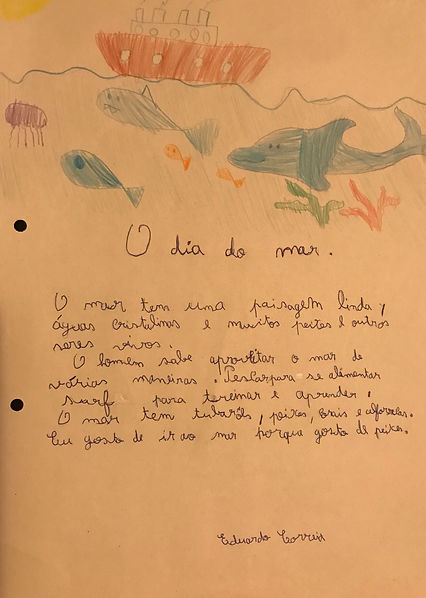 O dia do mar.
O mar tem uma paisagem linda,
águas cristalinas e muitos peixes e outros
seres vivos.
O homem sabe aproveitar o mar de
várias maneiras. Pescar para se alimentar
surf para treinar e aprender.
O mar tem tubarões, peixes, corais e alforrecas.
Eu gosto de ir ao mar porque gosto de peixes.
Eduardo Correia